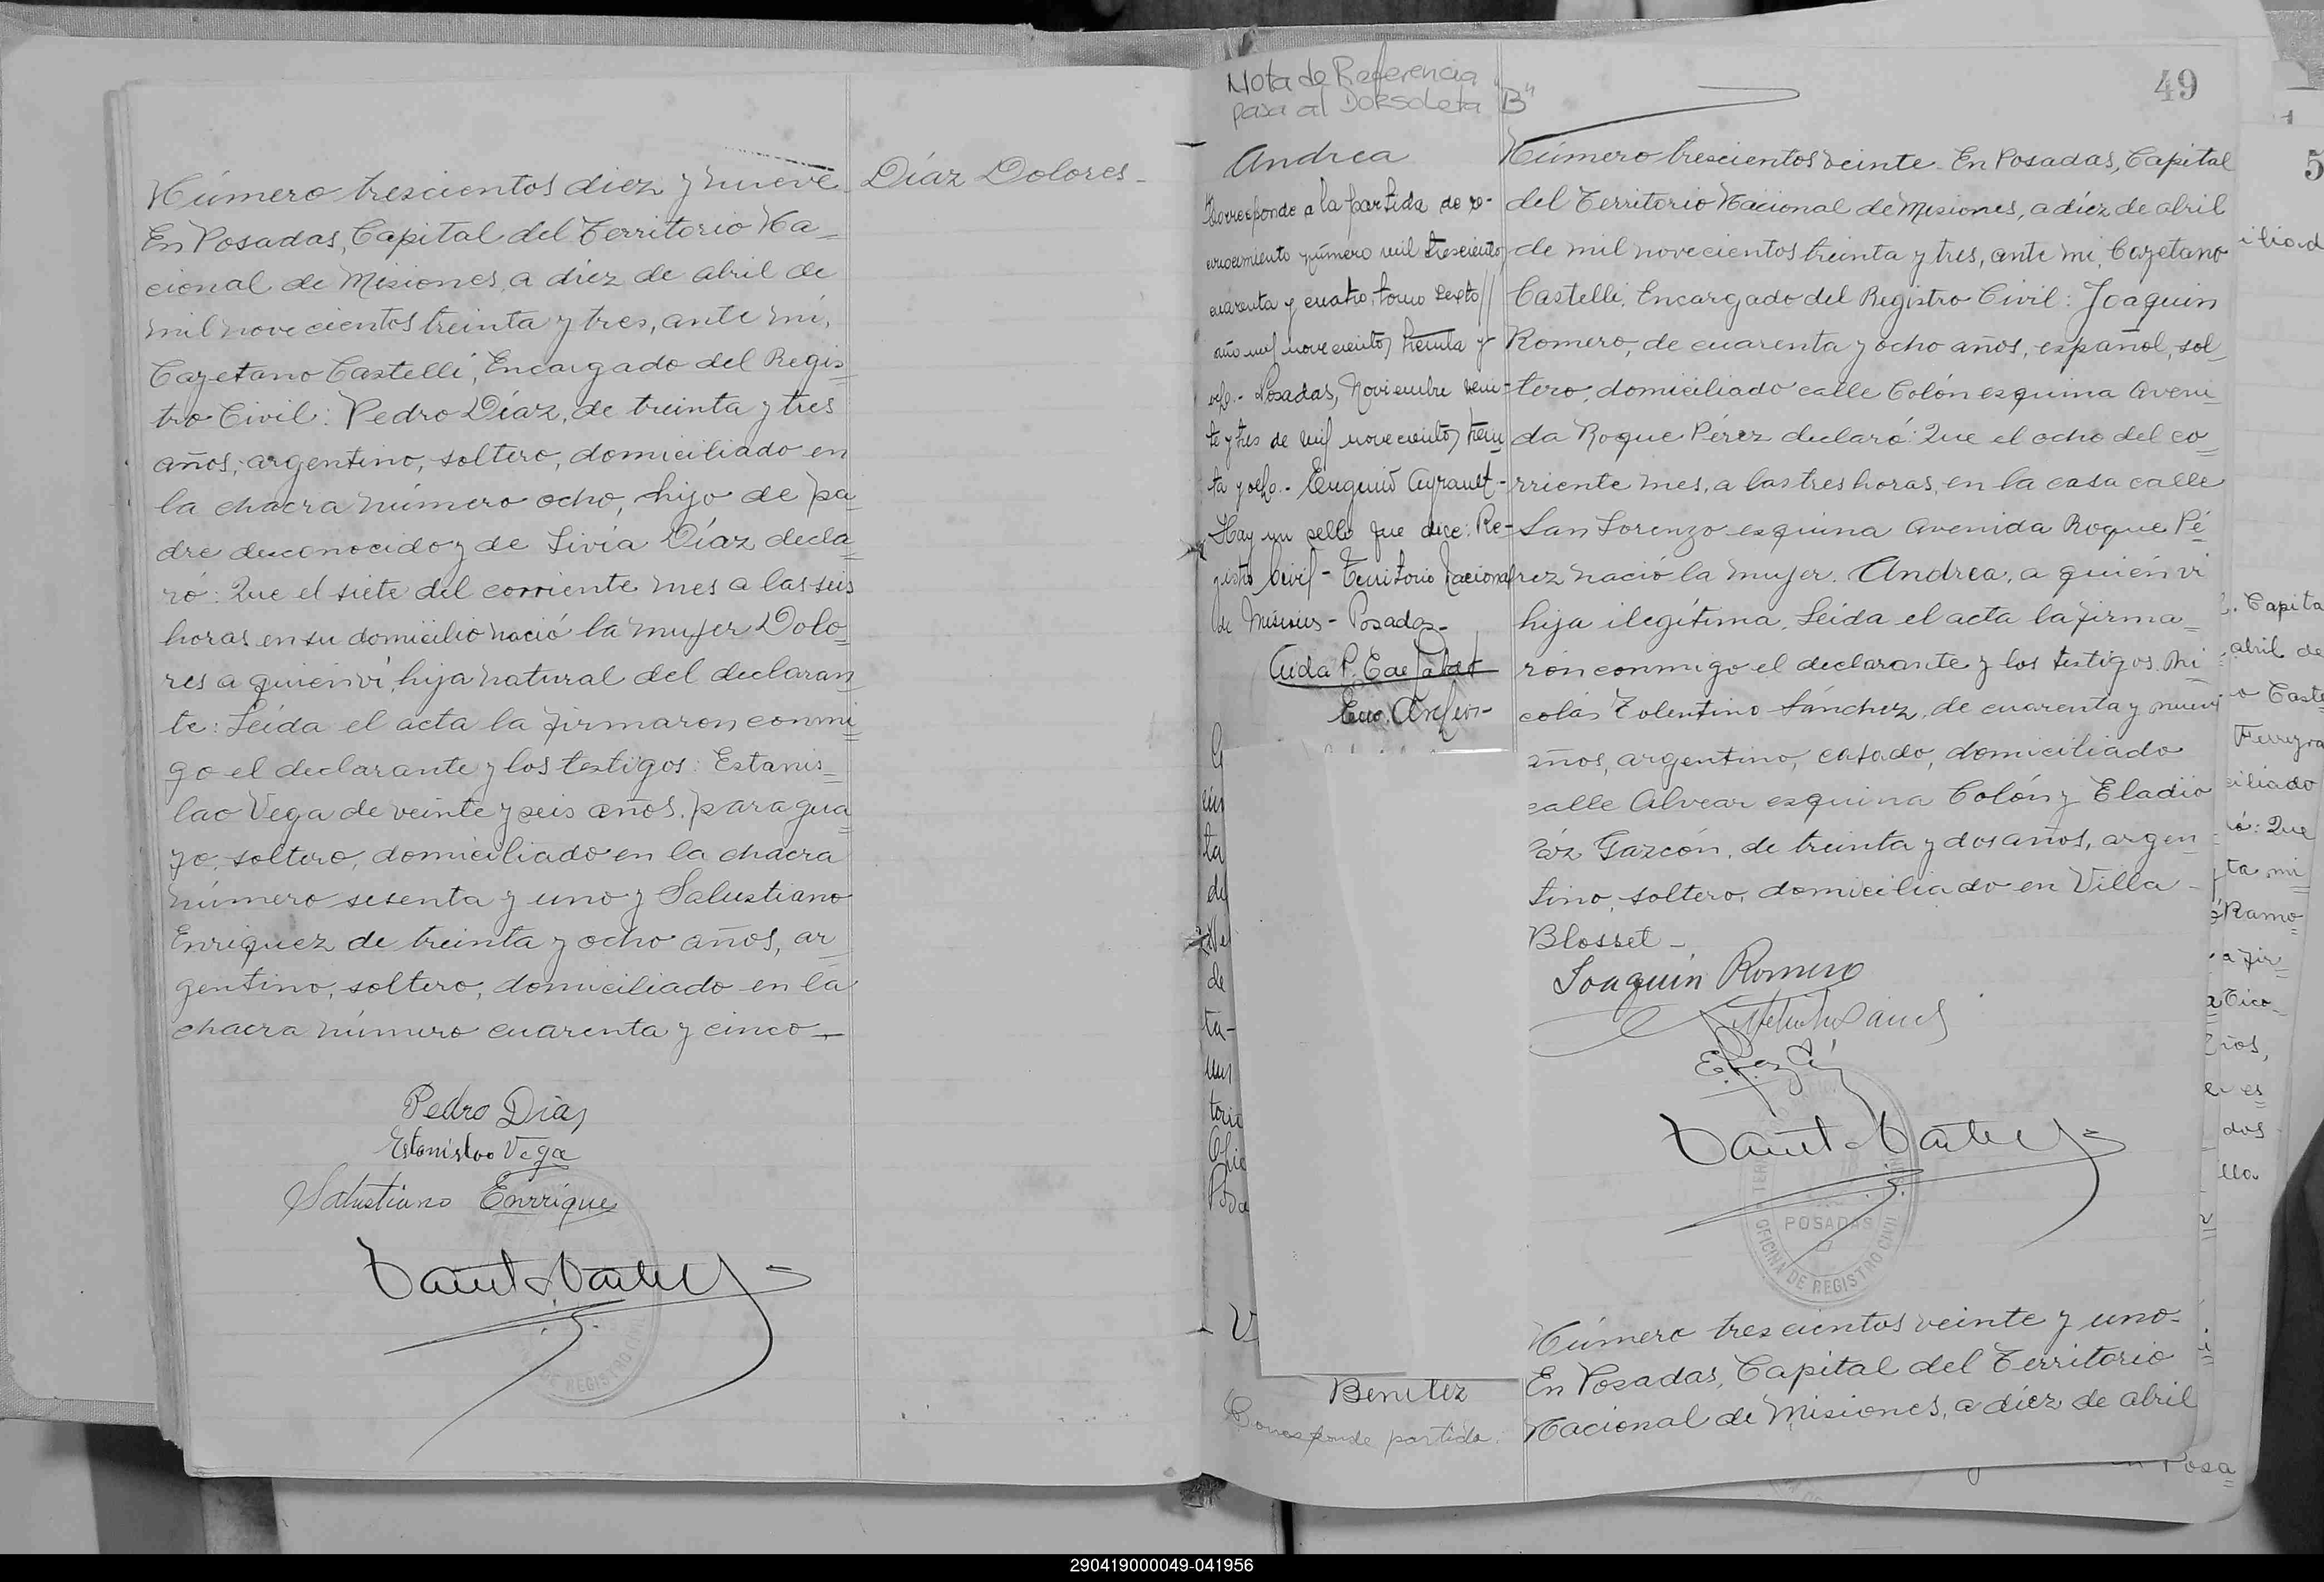 Número trescientos diez y nueve
En Posadas, Capital del Territorio Na=
cional de Misiones, a diez de abril de
mil novecientos treinta y tres, ante mi,
Cayetano Castelli, Encargado del Regis=
tro Civil: Pedro Díaz, de treinta y tres
años, argentino, soltero, domiciliado en
la chacra número ocho, hijo de pa=
dre desconocido y de Livia Díaz decla=
ró: Que el siete del corriente mes a las seis
horas en su domicilio nació la mujer Dolo=
res a quién vi, hija natural del declaran=
te: Leída el acta la firmaron conmi=
go el declarante y los testigos: Estanis=
lao Vega de veinte y seis años, paragua=
yo, soltero, domiciliado en la chacra
número sesenta y uno y Salustiano
Enriquez de treinta y ocho años, ar=
gentino, soltero, domiciliado en la
chacra número cuarenta y cinco —
Pedro Dias
Estanislao Vega
Salustiano Enrrique
Díaz Dolores -
Nota de Referencia
pasa al Dorso Leta "B"
49
Andrea
Corresponde a la partida de re-
conocimiento número mil trescientos
cuarenta y cuatro, tomo sexto //
año mil novecientos treinta y
ocho.- Posadas, Noviembre vein-
te y tres de mil novecientos trein
ta y ocho.- Eugenio Ayrault -
Hay un sello que dice: Re-
gistro Civil - Territorio Nacional
de Misiones - Posadas -
Número trescientos veinte - En Posadas, Capital
del Territorio Nacional de Misiones, a diez de abril
de mil novecientos treinta y tres, ante mi, Cayetano
Castelli, Encargado del Registro Civil: Joaquin
Romero, de cuarenta y ocho años, español, sol=
tero, domiciliado calle Colón esquina Aveni=
da Roque Pérez declaró: Que el ocho del co=
rriente mes, a las tres horas, en la casa calle
San Lorenzo esquina Avenida Roque Pé=
rez nació la mujer Andrea, a quién vi
hija ilegítima. Leída el acta la firma=
ron conmigo el declarante y los testigos Ni=
colás Tolentino Sánchez, de cuarenta y nueve
años, argentino, casado, domiciliado
calle Alvear esquina Colón y Eladio
Gazcón, de treinta y dos años, argen=
tino, soltero, domiciliado en Villa
Blosset -
Joaquín Romero
POSADAS
OFICINA DE REGISTRO CIVIL
Benitez
Corresponde partida
Número trescientos veinte y uno -
En Posadas, Capital del Territorio
Nacional de Misiones, a diez de abril
290419000049-041956